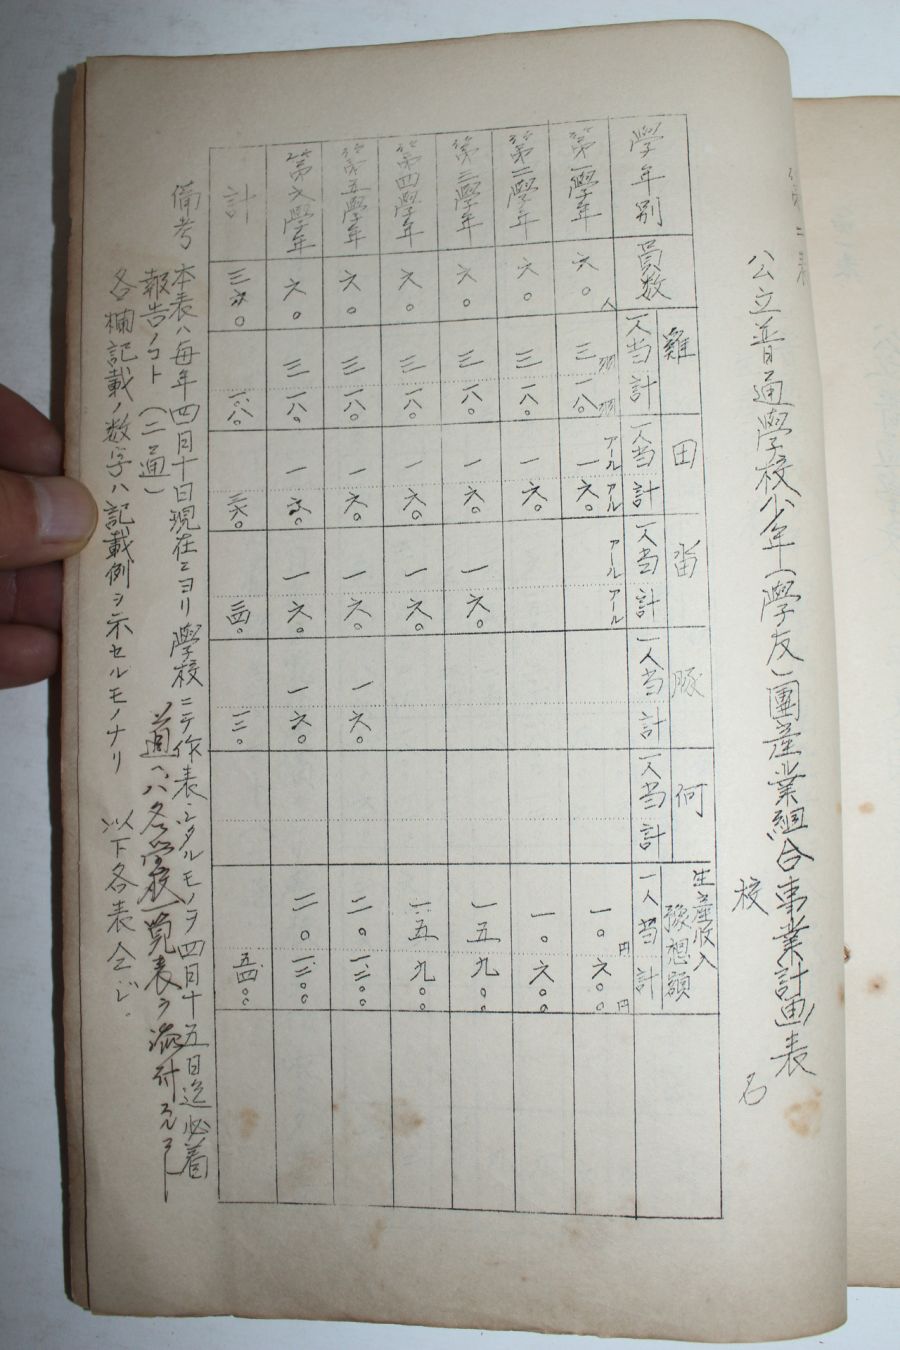 公立普通學校少年(學友)團産業組合事業計画表
校 名
學年別 員数 雞 一人当 計 田 一人当 計 畓 一人当 計 豚 一人当 計 何 一人当 計 生産收入豫想額 一人当 計
第一學年 六〇人 三羽 一八〇羽 一アール 六〇アール アール アール 一〇円 六〇〇円
第二學年 六〇 三 一八〇 一 六〇 一〇 六〇〇
第三學年 六〇 三 一八〇 一 六〇 一 六〇 一五 九〇〇
第四學年 六〇 三 一八〇 一 六〇 一 六〇 一五 九〇〇
第五學年 六〇 三 一八〇 一 六〇 一 六〇 一 六〇 二〇 一二〇〇
第六學年 六〇 三 一八〇 一 六〇 一 六〇 一 六〇 二〇 一二〇〇
計 三六〇 一〇八〇 三六〇 二四〇 一二〇 五四〇〇
備考 本表ハ毎年四月十日現在ニヨリ學校ニテ作表シタルモノヲ四月十五日迄必着
報告ノコト (二通) 道ヘハ各学校一覧表ヲ添付スルコト
各欄記載ノ数字ハ記載例ヲ示セルモノナリ 以下各表仝ジ。